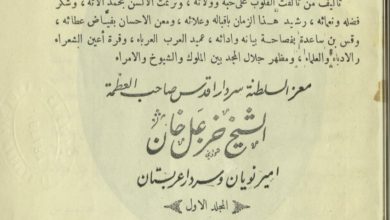 تأليف من تآلفت القلوب على حبه وولائه ، وترنمت الألسن بحمد آلائه ، وشكر
فضله ونعمائه ، رشيد هذا الزمان باقباله وعلائه ، ومعن الاحسان بفياض عطائه ،
وقس بن ساعدة بفصاحة بيانه وادائه ، عميد العرب العرباء ، وقرة أعين الشعراء
والادباء والعلماء ، ومظهر جلال المجد بين الملوك والشيوخ والامراء
معز السلطنة سردار اقدس صاحب العظمة
الشيخ خزعل خان
امير نويان وسردار عربستان
المجلد الاول